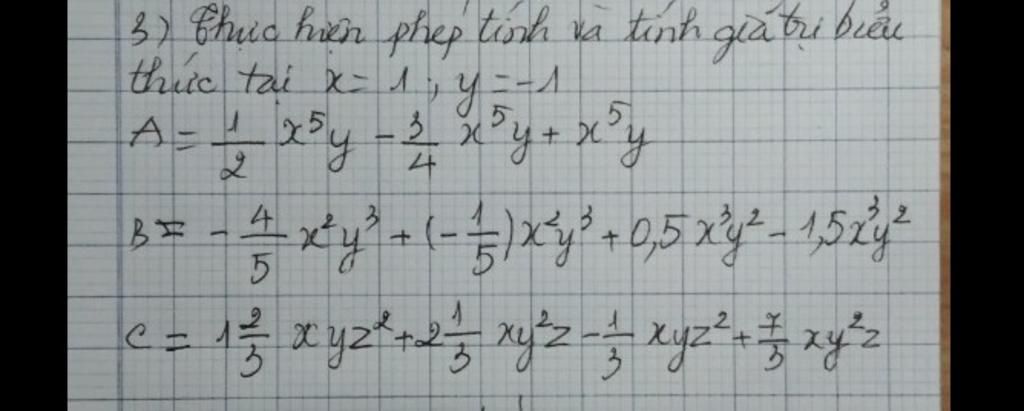 3) Thực hiện phép tính và tính giá trị biểu
thức tại x = 1 ; y = -1
A = 1/2 x⁵y - 3/4 x⁵y + x⁵y
B = - 4/5 x²y³ + (- 1/5) x²y³ + 0,5 x³y² - 1,5x³y²
C = 1 2/3 xyz² + 2 1/3 xy²z - 1/3 xyz² + 7/3 xy²z